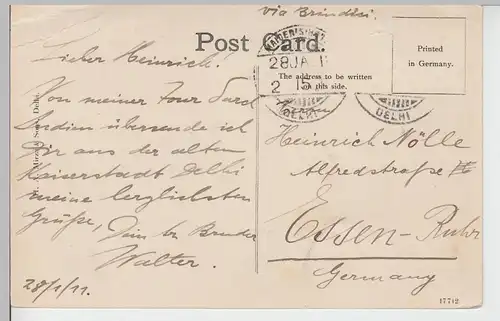 via Brindisi.
Post Card.
Printed
in Germany.
The address to be written
on this side.
28 JA 11
2 15
DELHI
DELHI
Lieber Heinrich!
Von meiner Tour durch
Indien übersende ich
Dir aus der alten
Kaiserstadt Delhi
meine herzlichsten
Grüße,
Dein Bruder
Walter.
28/1/11.
Herrn
Heinrich Nölle
Alfredstraße
Essen-Ruhr
Germany
17712